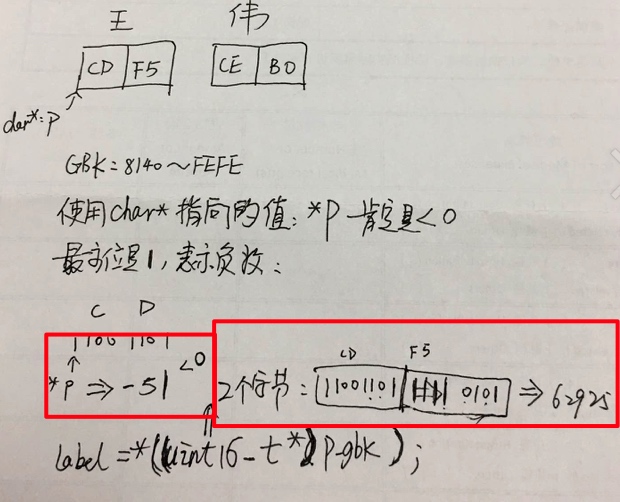 王 伟
CD F5 CE B0
char*: P
GBK: 8140～FEFE
使用char*指向的值: *P 一肯定是<0
最高位是1, 表示负数:
C D
1100 1101
*P ⇒ -51 <0
CD F5
2个字节: 11001101 1111 0101 ⇒ 62925
label = *((uint16_t*) P-gbk);